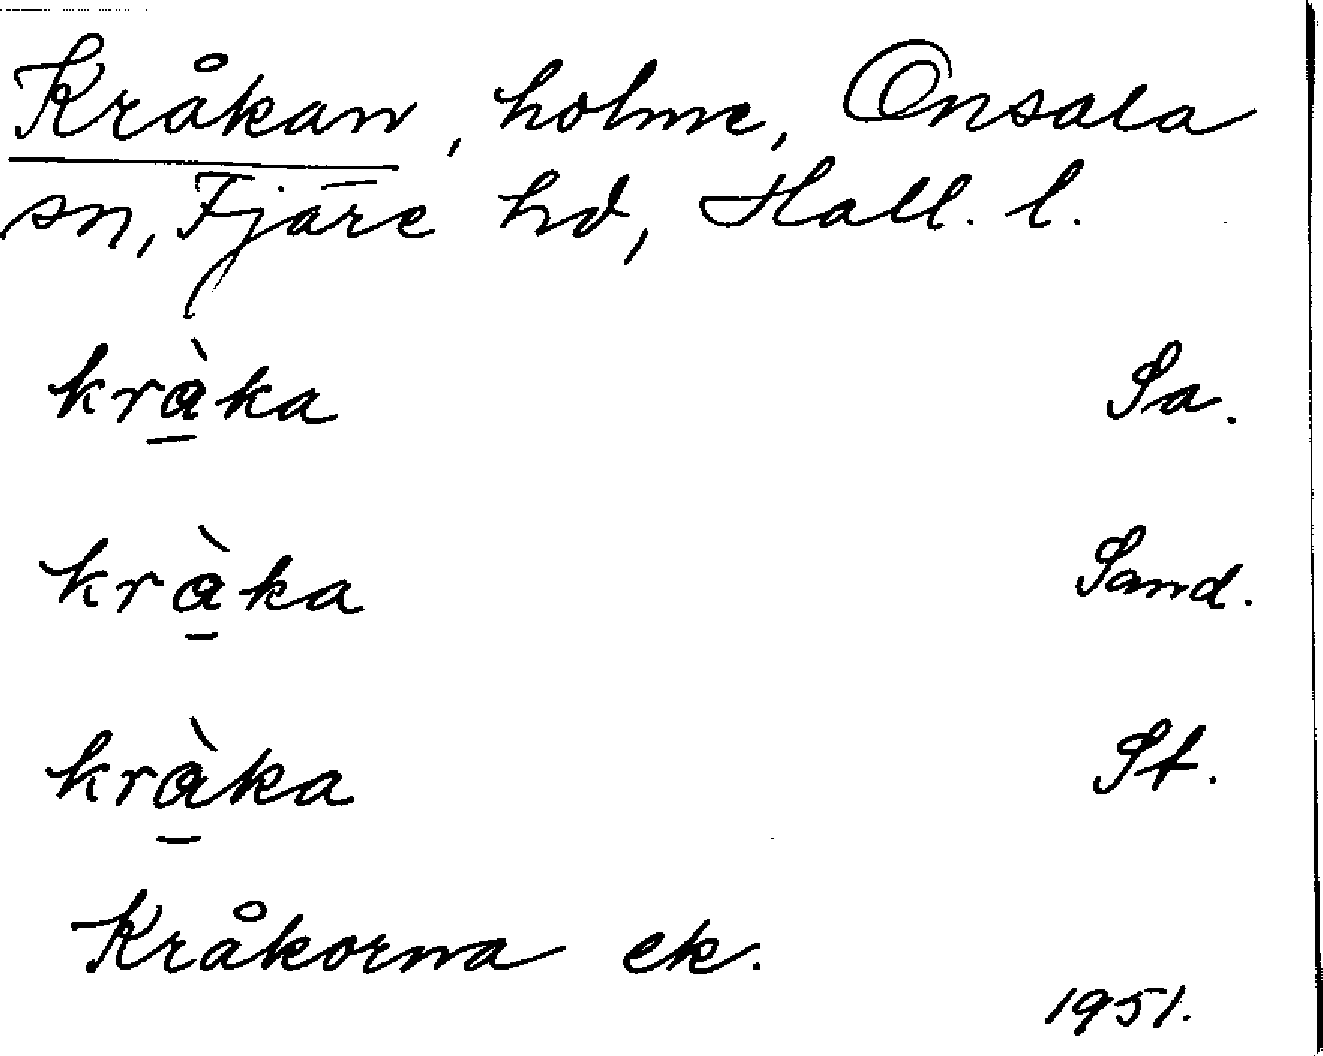 Kråkan, holme, Onsala
sn, Fjäre hd, Hall. l.
kràka Sa.
kràka Sand.
kràka St.
Kråkorna ek.
1951.